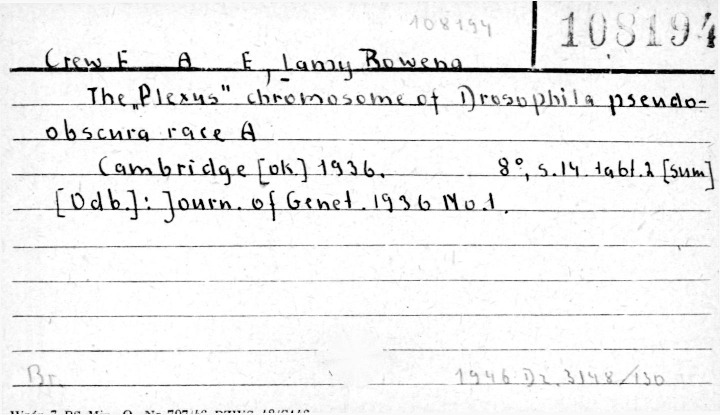 108194
108194
Crew F A E, Lamy Rowena
The „Plexus" chromosome of Drosophila pseudo-
obscura race A
Cambridge [ok.] 1936. 8°, s.14. tabl.2 [sum]
[Odb.]: Journ. of Genet. 1936 No.1.
Br. 1946 Dz. 3148/130